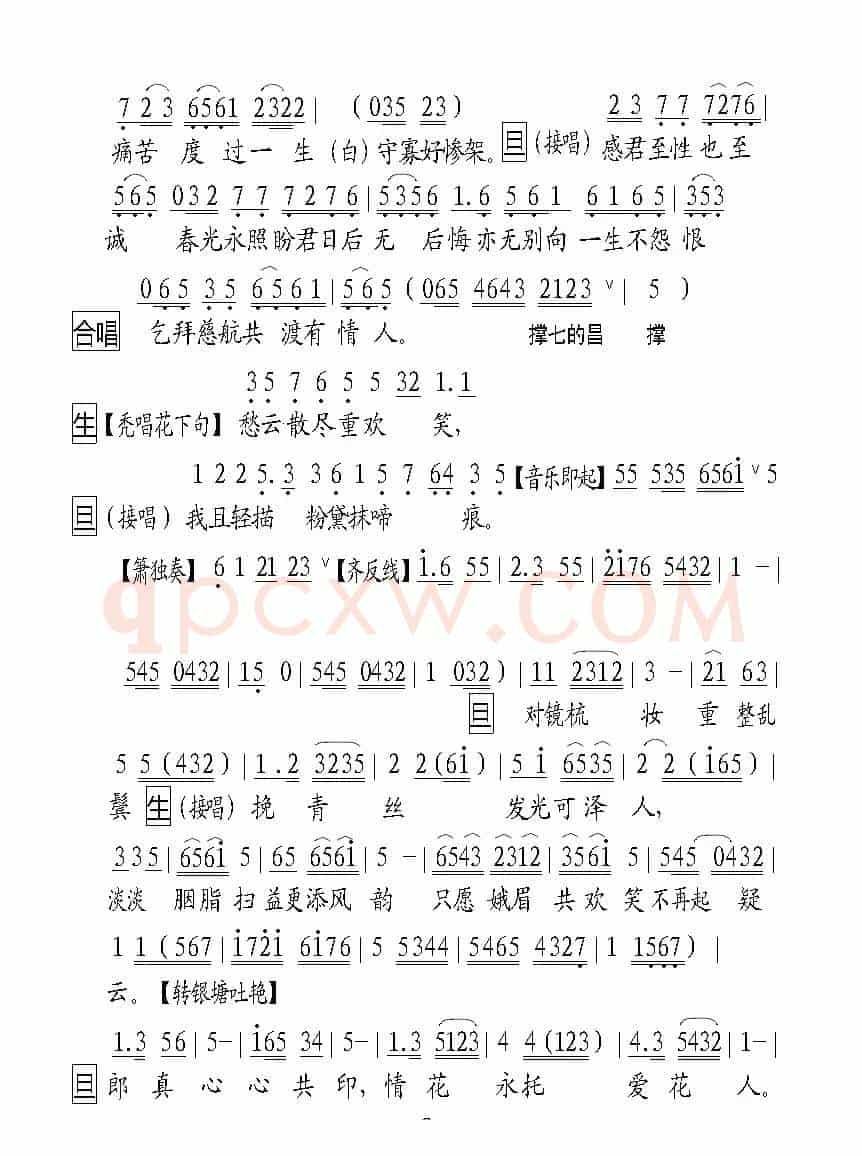 7 23 6561 2322 | (035 23) 23 77 7276 |
痛苦 度 过一 生 (白) 守寡好惨架。 旦 (接唱) 感君至性也至
565 032 77 7276 | 5356 1.6 561 6165 | 353
诚 春光永照盼君日后无 后悔亦无别向 一生不怨 恨
065 35 6561 | 565 (065 4643 2123 ˅ | 5 )
合唱 乞拜慈航共 渡有 情 人。 撑七的昌 撑
3 5 7 6 5 5 32 1.1
生 【秃唱花下句】 愁云散尽重欢 笑,
1 2 2 5.3 3 6 1 5 7 64 3 5 【音乐即起】 55 535 6561 ˅ 5
旦 (接唱) 我且轻描 粉黛抹啼 痕。
【箫独奏】 6 1 21 23 ˅ 【齐反线】 1.6 55 | 2.3 55 | 2176 5432 | 1 - |
qpcxw.COM
545 0432 | 15 0 | 545 0432 | 1 032 ) | 11 2312 | 3 - | 21 63 |
旦 对镜梳 妆 重 整乱
5 5 (432) | 1.2 3235 | 2 2 (61) | 5 1 6535 | 2 2 (165) |
鬓 生 (接唱) 挽 青 丝 发光可泽 人,
335 | 6561 5 | 65 6561 | 5 - | 6543 2312 | 3561 5 | 545 0432 |
淡淡 胭脂 扫 益更添风 韵 只愿 娥眉 共 欢 笑 不再起 疑
1 1 (567 | 1721 6176 | 5 5344 | 5465 4327 | 1 1567 ) |
云。【转银塘吐艳】
1.3 56 | 5- | 165 34 | 5- | 1.3 5123 | 4 4 (123) | 4.3 5432 | 1- |
旦 郎 真 心 心 共 印, 情 花 永托 爱 花 人。